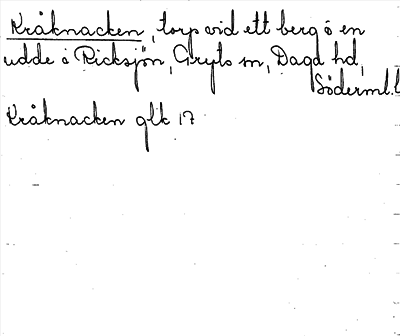 Kråknacken, torp vid ett berg å en
udde i Ricksjön, Gryts sn, Daga hd,
Söderml.l
Kråknacken glk 17